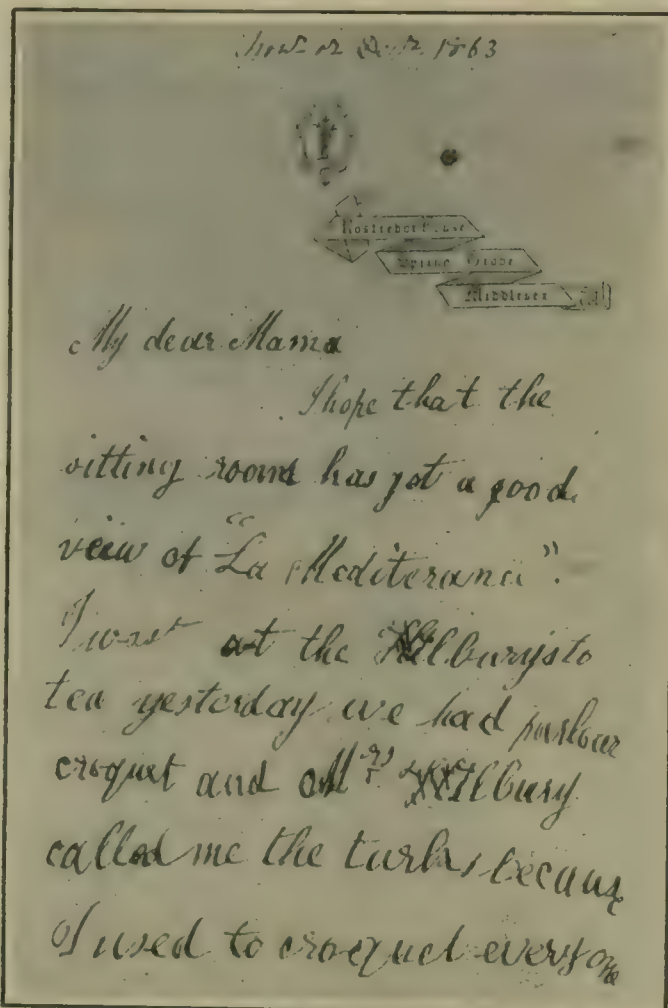 1863
House
Spring Grove
Middlesex
My dear Mama
I hope that the
sitting room has got a good
view of "La Mediterané".
I was at the Kilbury's to
tea yesterday we had parlour
croquet and Mrs Kilbury
called me the turk, because
I used to croquet every one